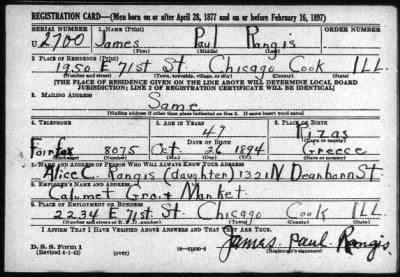 REGISTRATION CARD—(Men born on or after April 28, 1877 and on or before February 16, 1897)
SERIAL NUMBER 1. NAME (Print) ORDER NUMBER
U 2700 James Paul Rangis
(First) (Middle) (Last)
2. PLACE OF RESIDENCE (Print)
1950 E 71st St. Chicago Cook ILL.
(Number and street) (Town, township, village, or city) (County) (State)
[THE PLACE OF RESIDENCE GIVEN ON THE LINE ABOVE WILL DETERMINE LOCAL BOARD
JURISDICTION; LINE 2 OF REGISTRATION CERTIFICATE WILL BE IDENTICAL]
3. MAILING ADDRESS
Same
[Mailing address if other than place indicated on line 2. If same insert word same]
4. TELEPHONE 5. AGE IN YEARS 6. PLACE OF BIRTH
47
DATE OF BIRTH
Fairfax 8075 Oct 26 1894 Greece
(Exchange) (Number) (Mo.) (Day) (Yr.) (State or country)
7. NAME AND ADDRESS OF PERSON WHO WILL ALWAYS KNOW YOUR ADDRESS
Alice C. Rangis (daughter) 1321 N Dearborn St.
8. EMPLOYER'S NAME AND ADDRESS
Calumet Gro. + Market.
9. PLACE OF EMPLOYMENT OR BUSINESS
2234 E 71st St. Chicago Cook ILL
(Number and street or R. F. D. number) (Town) (County) (State)
I AFFIRM THAT I HAVE VERIFIED ABOVE ANSWERS AND THAT THEY ARE TRUE.
D. S. S. Form 1
(Revised 4-1-42) (over) James Paul Rangis
(Registrant's signature)